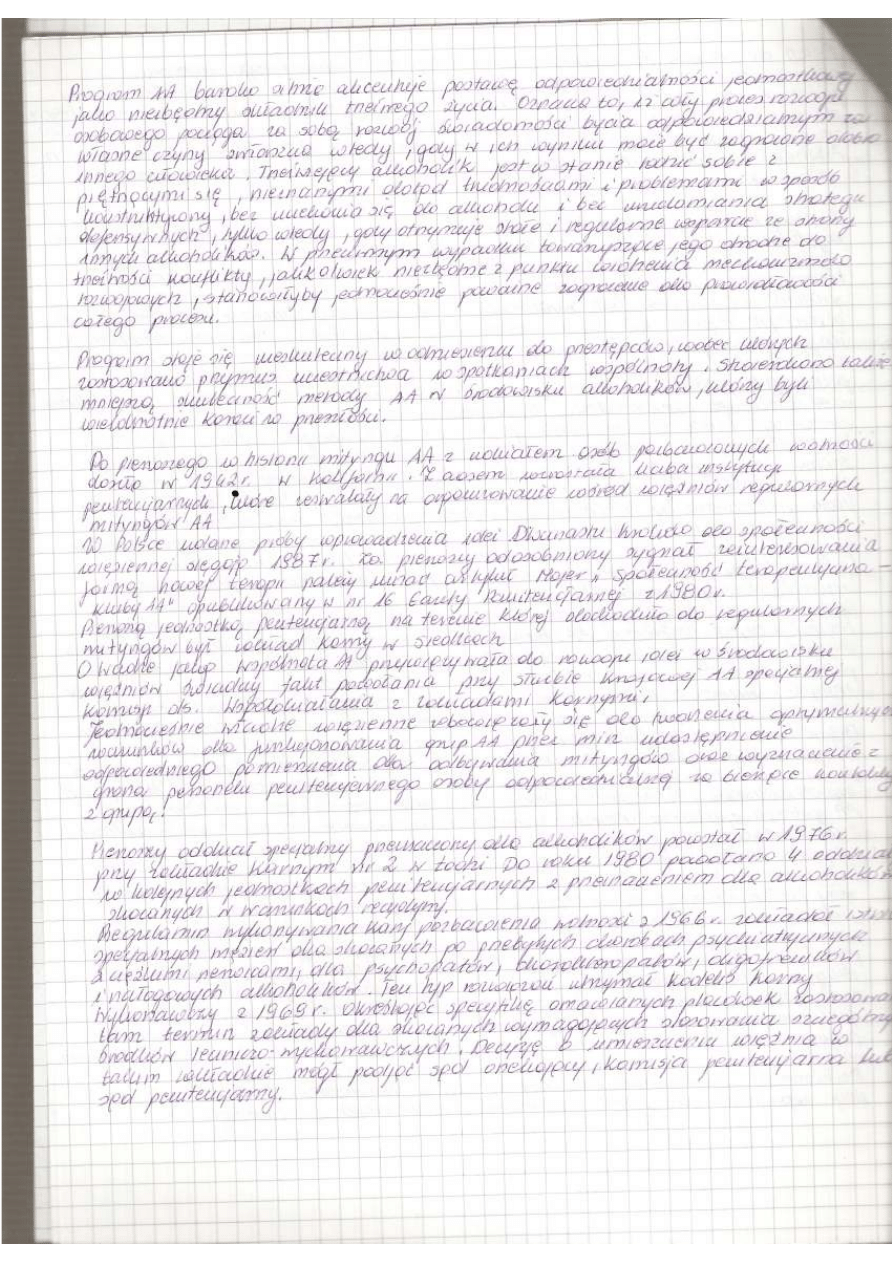 Program AA bardzo silnie akcentuje postawę odpowiedzialności jednostkowej
jako niezbędny składnik trzeźwego życia. Oznacza to, iż cały proces rozwoju
osobowego pociąga za sobą rozwój świadomości bycia odpowiedzialnym za
własne czyny zwłaszcza wtedy, gdy w ich wyniku może być zagrożone dobro
innego człowieka. Trzeźwiejący alkoholik jest w stanie radzić sobie z
piętrzącymi się, nieznanymi dotąd trudnościami i problemami w sposób
konstruktywny, bez uciekania się do alkoholu i bez uruchamiania strategii
defensywnych, tylko wtedy, gdy otrzymuje stałe i regularne wsparcie ze strony
innych alkoholików. W przeciwnym wypadku towarzyszące jego drodze do
trzeźwości konflikty, jakkolwiek niezbędne z punktu widzenia mechanizmów
rozwojowych, stanowiłyby jednocześnie poważne zagrożenie dla prawidłowości
całego procesu.
Program staje się nieskuteczny w odniesieniu do przestępców, wobec których
zastosowano przymus uczestnictwa w spotkaniach wspólnoty. Stwierdzono także
mniejszą skuteczność metody AA w środowisku alkoholików, którzy byli
wielokrotnie karani w przeszłości.
Do pierwszego w historii mityngu AA z udziałem osób pozbawionych wolności
doszło w 1942r. w Kaliforni. Z czasem wzrastała liczba instytucji
penitencjarnych, które zezwalały na organizowanie wśród więźniów regularnych
mityngów AA
W Polsce udane próby wprowadzenia idei Dwunastu Kroków do społeczności
więziennej sięgają 1987r. Za pierwszy odosobniony sygnał zainteresowania
formą nowej terapii należy uznać artykuł Majer „Społeczność terapeutyczna -
kluby AA" opublikowany w nr 16 Gazety Penitencjarnej z 1980r.
Pierwszą jednostką penitencjarną na terenie której dochodziło do regularnych
mityngów był zakład karny w Siedlcach
O wadze jaką wspólnota AA przywiązywała do rozwoju idei w środowisku
więźniów świadczy fakt powołania przy Służbie Krajowej AA specjalnej
Komisji ds. Współdziałania z zakładami karnymi.
Jednocześnie władze więzienne zobowiązały się do tworzenia optymalnych
warunków dla funkcjonowania grup AA przez min udostępnienie
odpowiedniego pomieszczenia dla odbywania mityngów oraz wyznaczenie z
grona personelu penitencjarnego osoby odpowiedzialnej za bieżące kontakty
z grupą.
Pierwszy oddział specjalny przeznaczony dla alkoholików powstał w 1976r.
przy zakładzie karnym Nr 2 w Łodzi Do roku 1980 powołano 4 oddziały
w kolejnych jednostkach penitencjarnych z przeznaczeniem dla alkoholików
skazanych w warunkach recydywy.
Regulamin wykonywania kary pozbawienia wolności z 1966r. zakładał
specjalnych więzień dla skazanych po przebytych chorobach psychiatrycznych
z ciężkimi nerwicami, dla psychopatów, charakteropatów, oligofreników
i nałogowych alkoholików. Ten typ rozwiązań utrzymał Kodeks Karny
Wykonawczy z 1969r. Określając specyfikę omawianych placówek zastosowano
tam termin zakłady dla skazanych wymagających stosowania szczególnych
środków leczniczo-wychowawczych. Decyzję o umieszczeniu więźnia w
takim zakładzie mógł podjąć sąd orzekający, komisja penitencjarna lub
sąd penitencjarny.